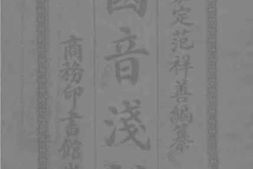 定范祥善編纂
國音淺
商務印書館